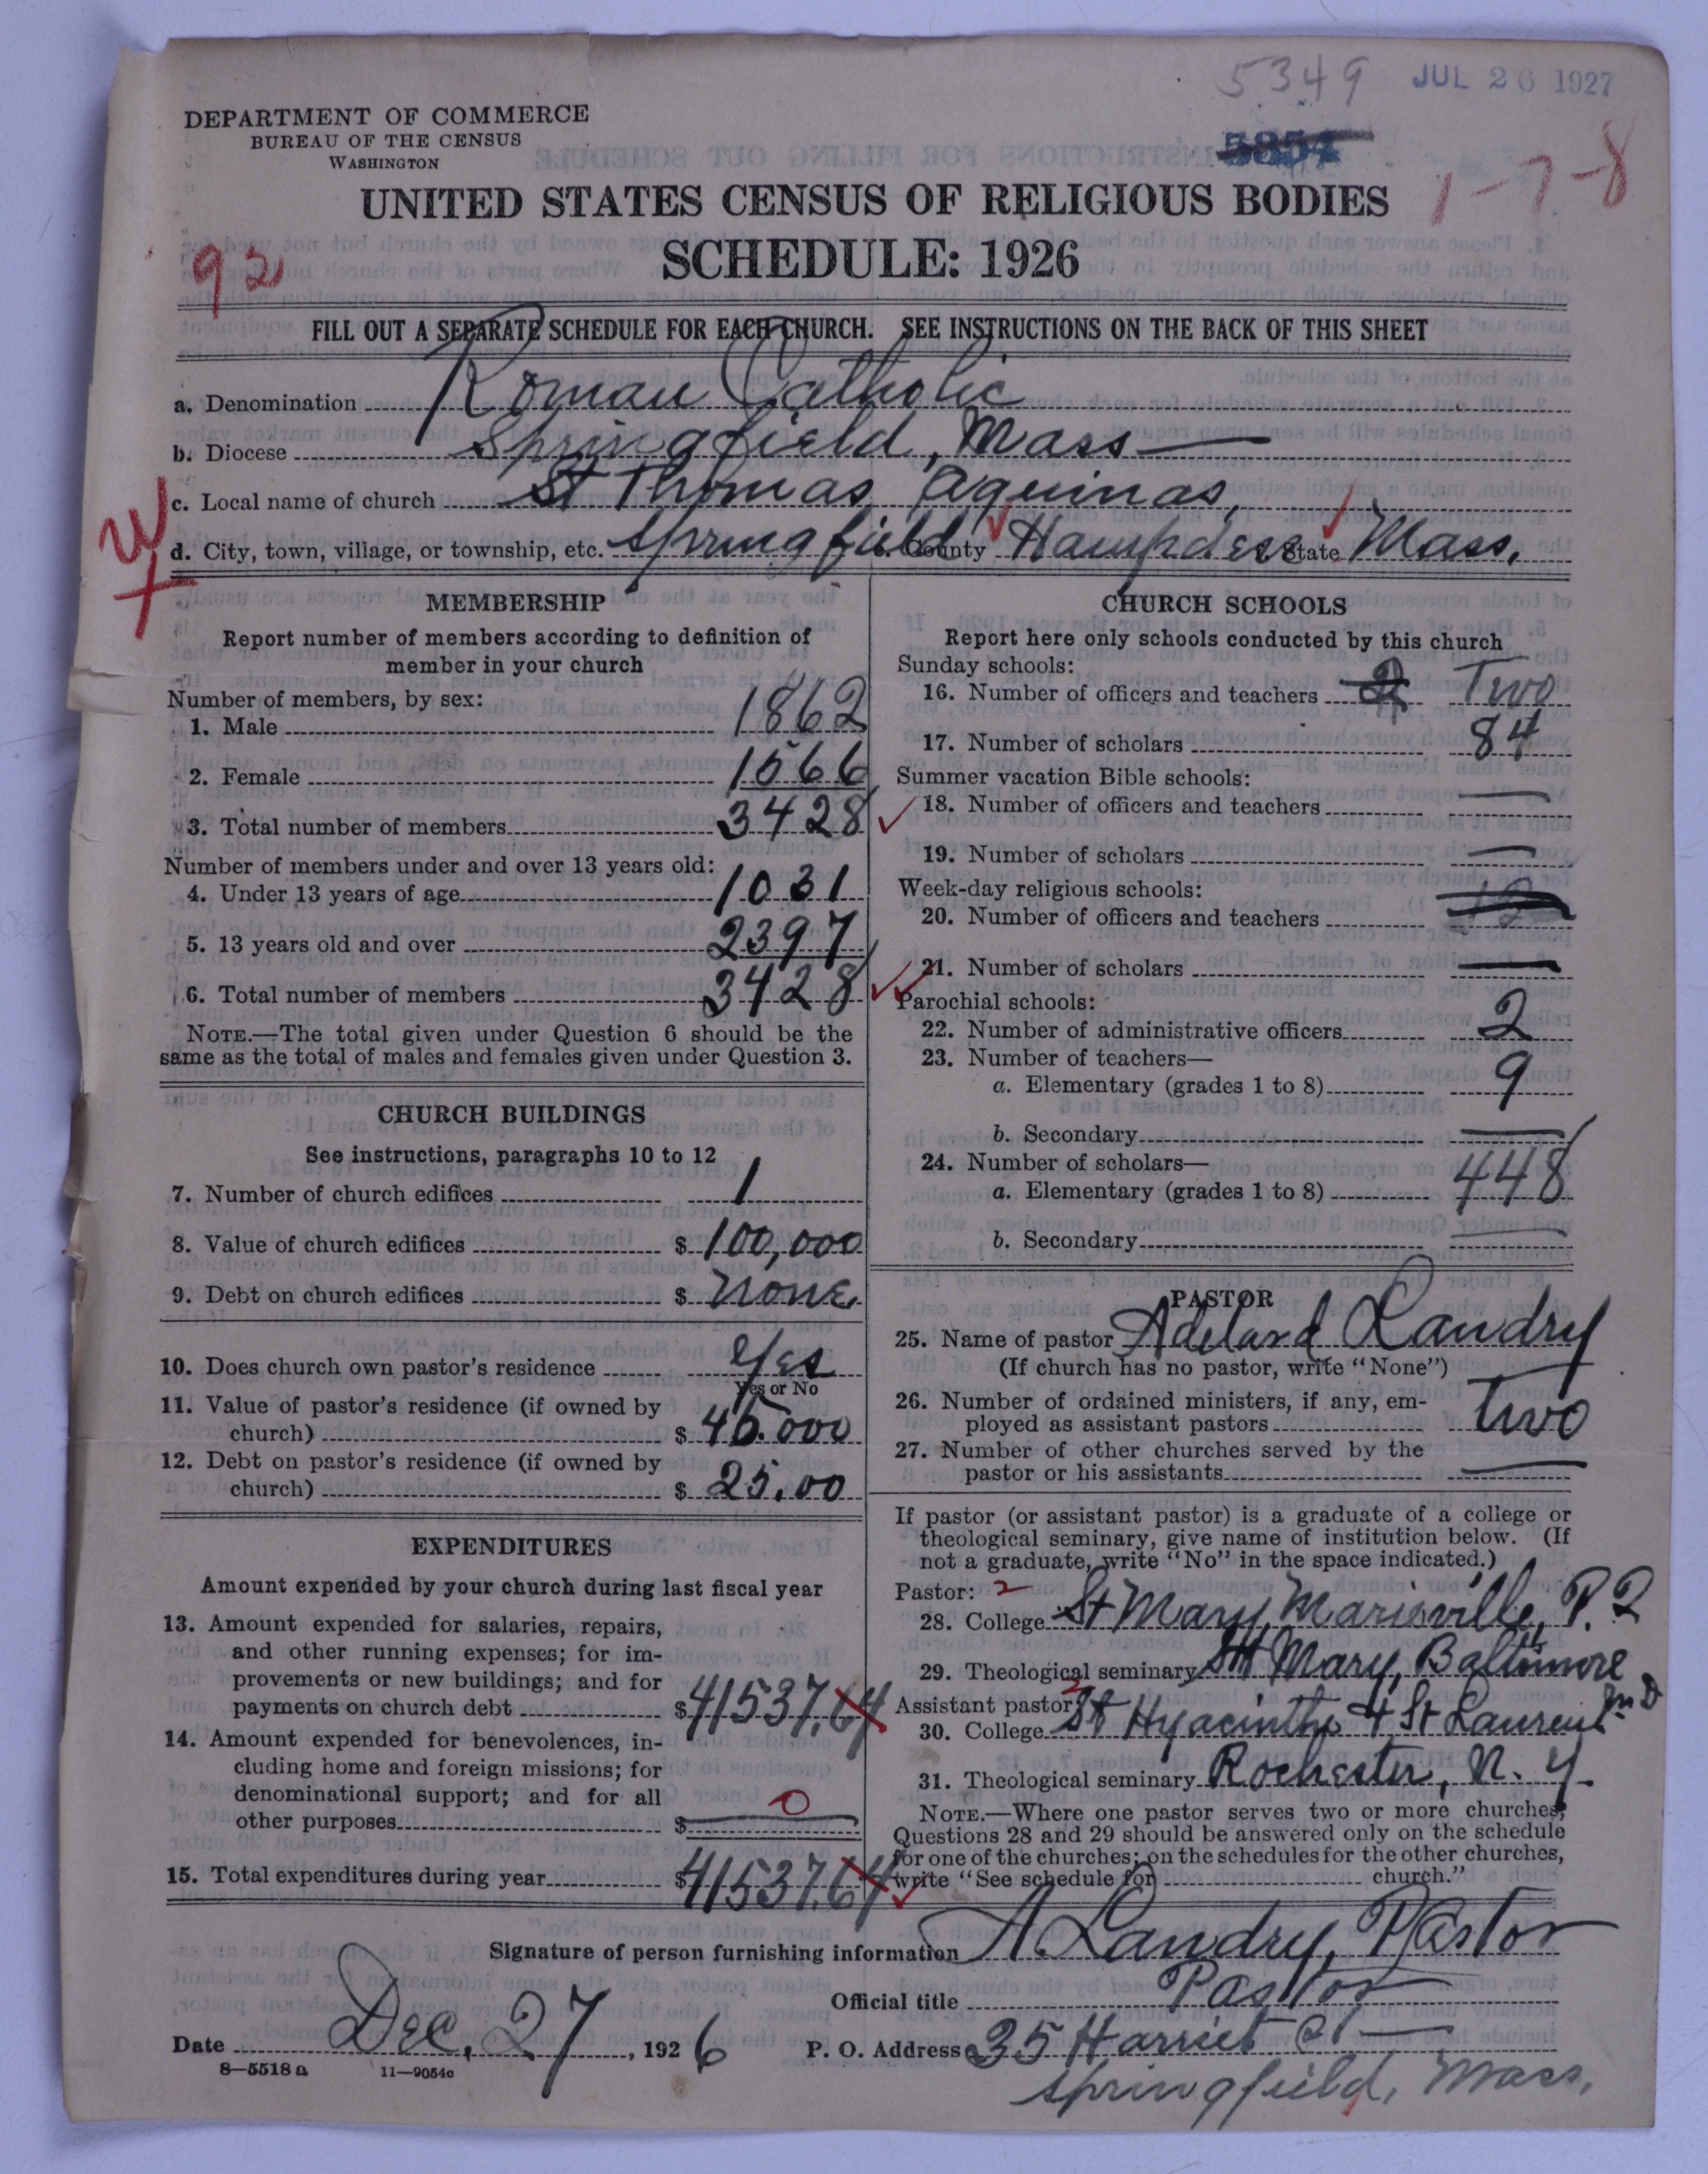 5349 JUL 26 1927
DEPARTMENT OF COMMERCE
BUREAU OF THE CENSUS
WASHINGTON
UNITED STATES CENSUS OF RELIGIOUS BODIES
1-7-8
SCHEDULE: 1926
92
FILL OUT A SEPARATE SCHEDULE FOR EACH CHURCH. SEE INSTRUCTIONS ON THE BACK OF THIS SHEET
a. Denomination Roman Catholic
b. Diocese Springfield, Mass
c. Local name of church St Thomas Aquinas,
d. City, town, village, or township, etc. Springfield County Hampden State Mass.
MEMBERSHIP
Report number of members according to definition of
member in your church
Number of members, by sex:
1. Male 1862
2. Female 1566
3. Total number of members 3428
Number of members under and over 13 years old:
4. Under 13 years of age 1031
5. 13 years old and over 2397
6. Total number of members 3428
NOTE.—The total given under Question 6 should be the
same as the total of males and females given under Question 3.
CHURCH BUILDINGS
See instructions, paragraphs 10 to 12
7. Number of church edifices 1
8. Value of church edifices $ 100,000
9. Debt on church edifices $ none
10. Does church own pastor's residence Yes
Yes or No
11. Value of pastor's residence (if owned by
church) $ 45.000
12. Debt on pastor's residence (if owned by
church) $ 25.00
EXPENDITURES
Amount expended by your church during last fiscal year
13. Amount expended for salaries, repairs,
and other running expenses; for im-
provements or new buildings; and for
payments on church debt $41537.64
14. Amount expended for benevolences, in-
cluding home and foreign missions; for
denominational support; and for all
other purposes $ 0
15. Total expenditures during year $41537.64
CHURCH SCHOOLS
Report here only schools conducted by this church
Sunday schools:
16. Number of officers and teachers Two
17. Number of scholars 84
Summer vacation Bible schools:
18. Number of officers and teachers —
19. Number of scholars —
Week-day religious schools:
20. Number of officers and teachers
21. Number of scholars —
Parochial schools:
22. Number of administrative officers 2
23. Number of teachers—
a. Elementary (grades 1 to 8) 9
b. Secondary —
24. Number of scholars—
a. Elementary (grades 1 to 8) 448
b. Secondary —
PASTOR
25. Name of pastor Adelard Landry
(If church has no pastor, write "None")
26. Number of ordained ministers, if any, em-
ployed as assistant pastors two
27. Number of other churches served by the
pastor or his assistants —
If pastor (or assistant pastor) is a graduate of a college or
theological seminary, give name of institution below. (If
not a graduate, write "No" in the space indicated.)
Pastor: 2
28. College St Mary, Marieville, P.Q
29. Theological seminary St Mary, Baltimore
Md
Assistant pastor: 2
30. College St Hyacinthe & St Laurent
31. Theological seminary Rochester, N. Y.
NOTE.—Where one pastor serves two or more churches,
Questions 28 and 29 should be answered only on the schedule
for one of the churches; on the schedules for the other churches,
write "See schedule for church."
Signature of person furnishing information A. Landry, Pastor
Official title Pastor
Date Dec. 27, 1926 P. O. Address 35 Harriet St
8—5518 a 11—9054c
Springfield, Mass.